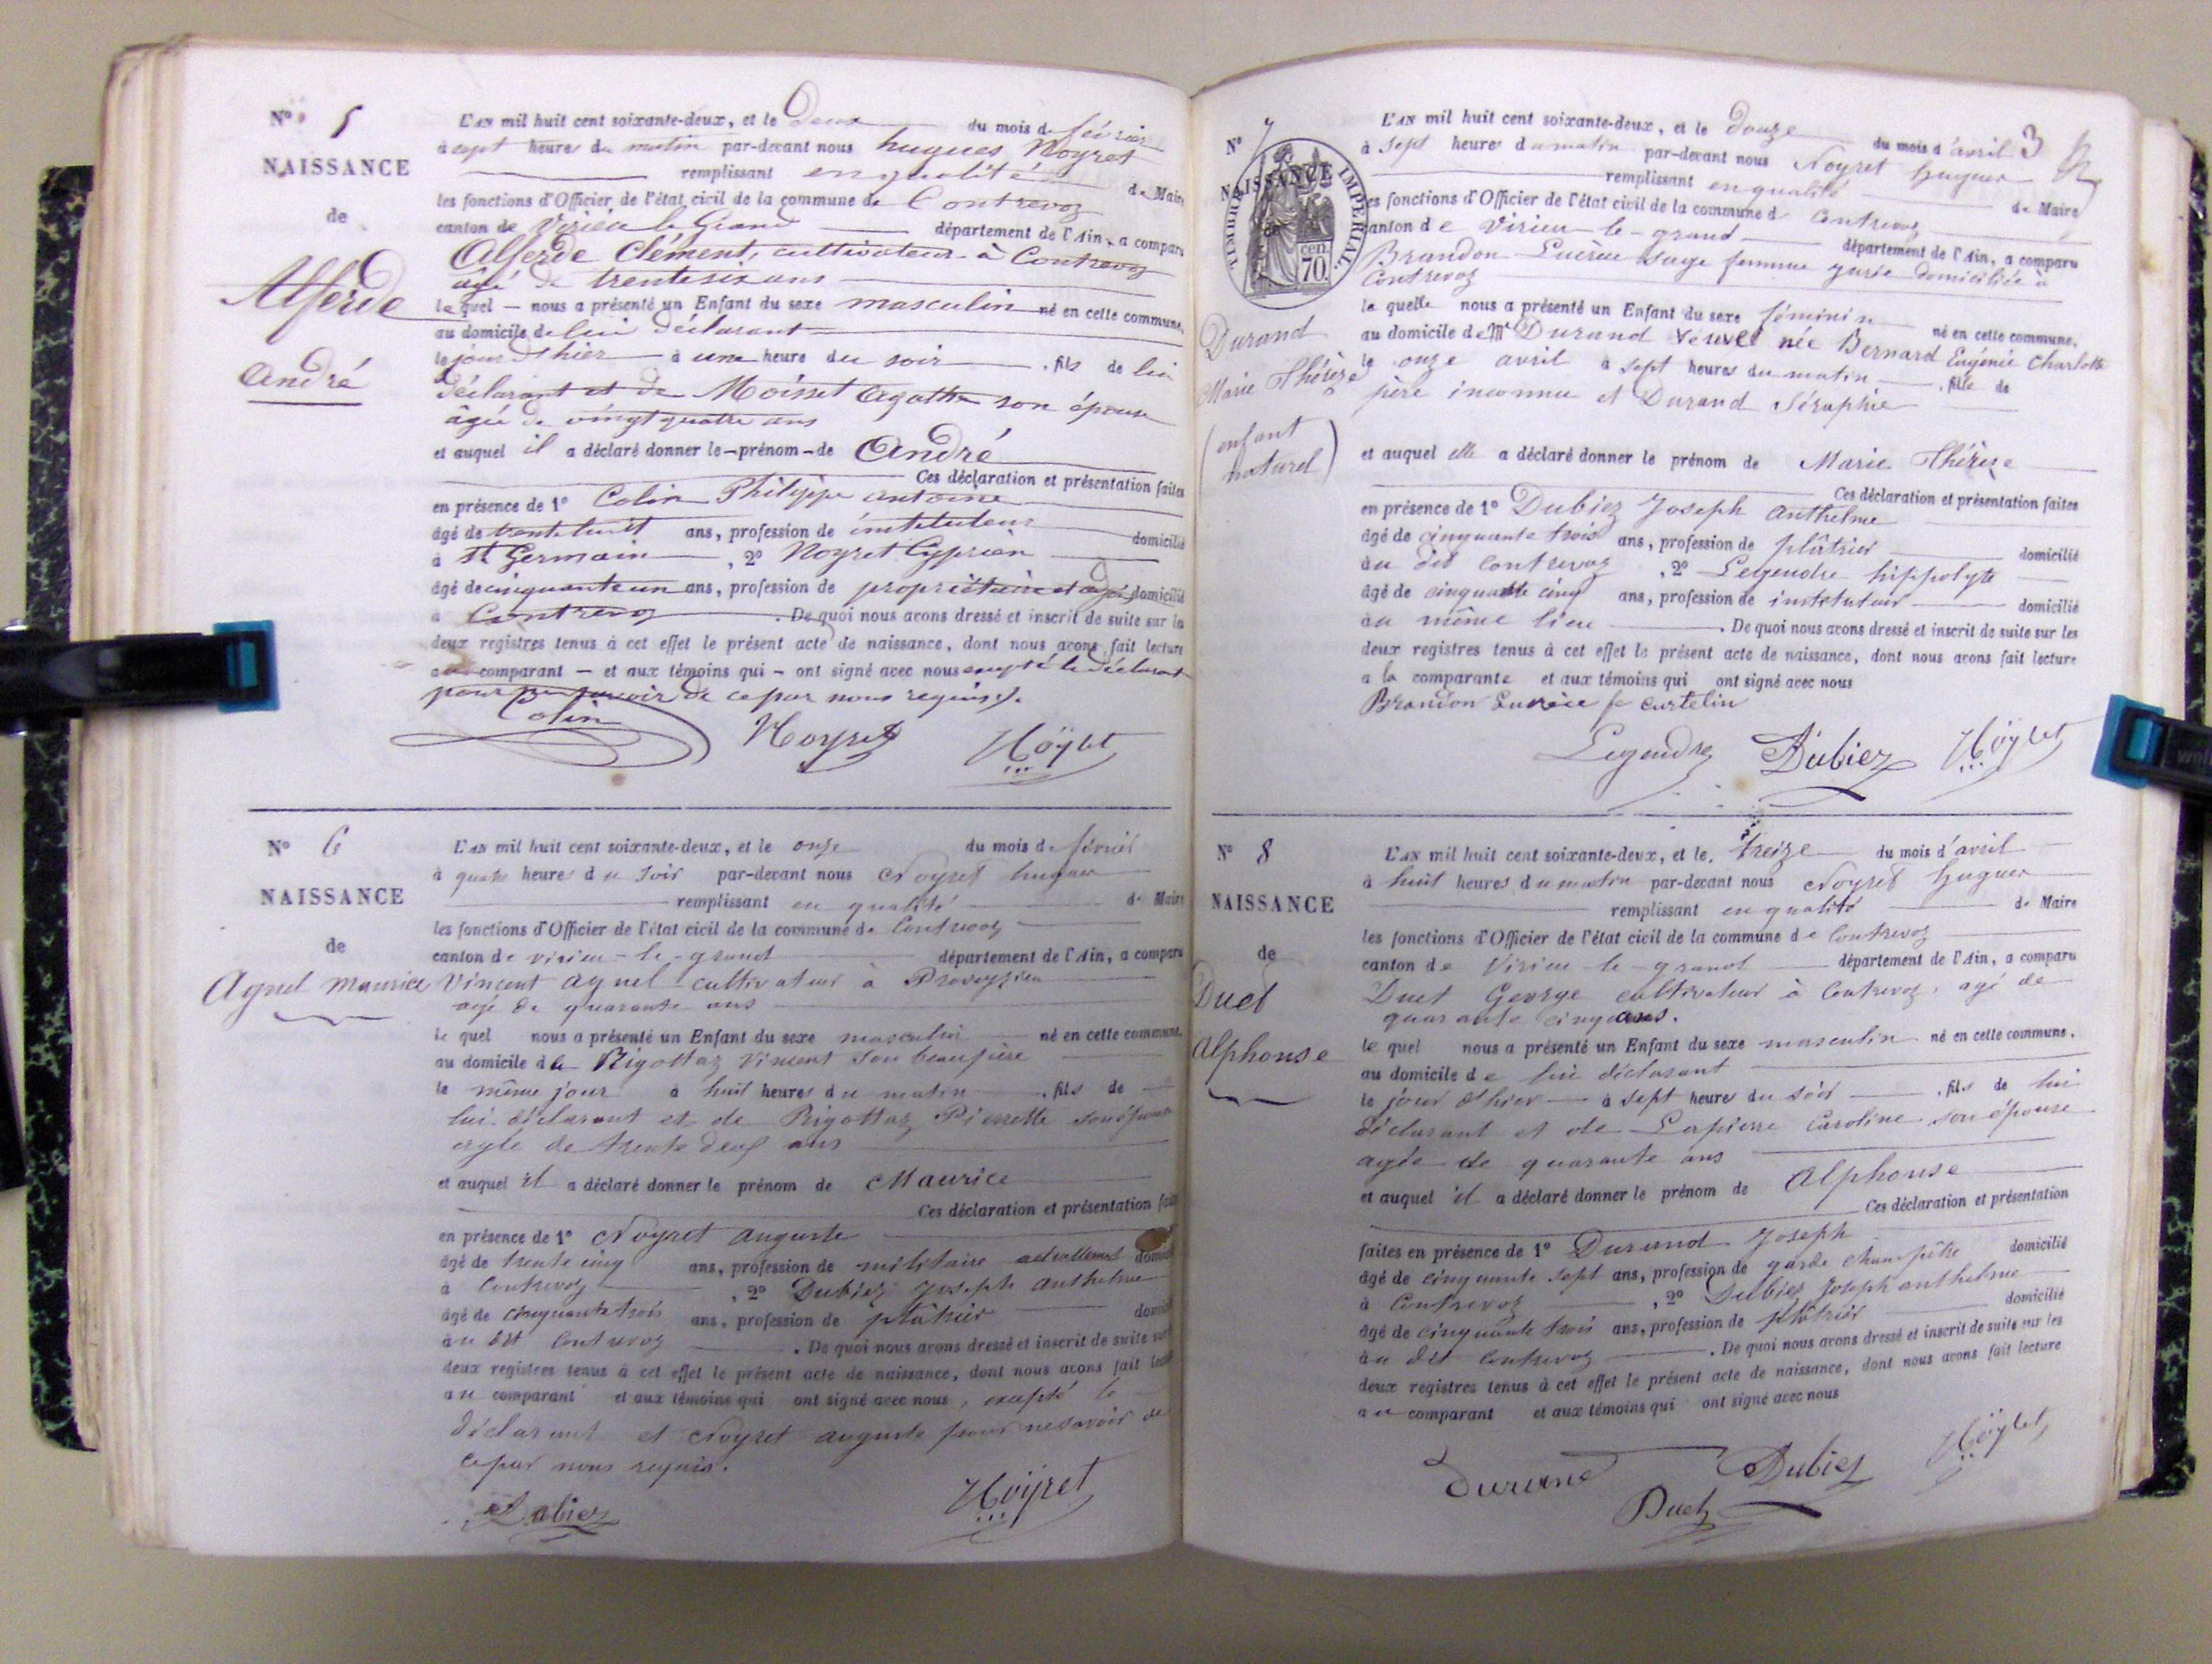 N° 5
NAISSANCE
de
Alferde
André
L'AN mil huit cent soixante-deux, et le Deux du mois de février
à sept heures du matin par-devant nous hugues Noyret
remplissant en qualité de Maire
les fonctions d'Officier de l'état civil de la commune de Contrevoz
canton de Virieu le Grand département de l'Ain, a comparu
Alferde Clément, cultivateur à Contrevoz
âgé de trente six ans
lequel – nous a présenté un Enfant du sexe masculin né en cette commune,
au domicile de lui déclarant
le jour d'hier à une heure du soir , fils de lui
déclarant et de Moisset Agathe son épouse
âgée de vingt quatre ans
et auquel il a déclaré donner le – prénom – de André
Ces déclaration et présentation faites
en présence de 1° Colin Philippe antoine
âgé de trente huit ans, profession de instituteur domicilié
à St Germain , 2° Noyret Cyprien
âgé de cinquante un ans, profession de propriétaire domicilié
à Contrevoz . De quoi nous avons dressé et inscrit de suite sur les
deux registres tenus à cet effet le présent acte de naissance, dont nous avons fait lecture
au comparant – et aux témoins qui – ont signé avec nous excepté le déclarant
pour ne savoir de ce par nous requis.
Colin Noyret Noyret
N° 6
NAISSANCE
de
Agnel Maurice
L'AN mil huit cent soixante-deux, et le onze du mois de février
à quatre heures du soir par-devant nous Noyret hugues
remplissant en qualité de Maire
les fonctions d'Officier de l'état civil de la commune de Contrevoz
canton de virieu-le-grand département de l'Ain, a comparu
Vincent agnel cultivateur à Preveyzieu
agé de quarante ans
le quel nous a présenté un Enfant du sexe masculin né en cette commune,
au domicile de Rigottaz Vincent son beau père
le même jour à huit heures du matin , fils de
lui déclarant et de Rigottaz Pierrette son épouse
agée de trente deux ans
et auquel il a déclaré donner le prénom de Maurice
Ces déclaration et présentation faites
en présence de 1° Noyret auguste
âgé de trente cinq ans, profession de militaire actuellement domicilié
à Contrevoz , 2° Dubiez Joseph anthelme
âgé de cinquante trois ans, profession de plâtrier domicilié
au dit Contrevoz . De quoi nous avons dressé et inscrit de suite sur
deux registres tenus à cet effet le présent acte de naissance, dont nous avons fait lecture
au comparant et aux témoins qui ont signé avec nous, excepté le
déclarant et Noyret auguste pour ne savoir de
ce par nous requis.
Dubiez Noyret
3
N° 7
NAISSANCE
de
TIMBRE IMPERIAL.
70 cen.
Durand
Marie Thérèze
(enfant
naturel)
L'AN mil huit cent soixante-deux, et le douze du mois d'avril
à sept heures du matin par-devant nous Noyret hugues
remplissant en qualité de Maire
les fonctions d'Officier de l'état civil de la commune de Contrevoz
canton de Virieu-le-grand département de l'Ain, a comparu
Brandon Lucrèce sage femme jurée domiciliée à
Contrevoz
la quelle nous a présenté un Enfant du sexe féminin né en cette commune,
au domicile de Durand veuve née Bernard Eugénie Charlotte
le onze avril à sept heures du matin , fille de
père inconnu et Durand Séraphie
et auquel elle a déclaré donner le prénom de Marie Thérèze
Ces déclaration et présentation faites
en présence de 1° Dubiez Joseph anthelme
âgé de cinquante trois ans, profession de plâtrier domicilié
au dit Contrevoz , 2° Legendre hippolyte
âgé de cinquante cinq ans, profession de instituteur domicilié
au même lieu . De quoi nous avons dressé et inscrit de suite sur les
deux registres tenus à cet effet le présent acte de naissance, dont nous avons fait lecture
a la comparante et aux témoins qui ont signé avec nous
Brandon Lucrèce fe curtelin
Legendre Dubiez Noyret
N° 8
NAISSANCE
de
Duet
Alphonse
L'AN mil huit cent soixante-deux, et le treize du mois d'avril
à huit heures du matin par-devant nous Noyret hugues
remplissant en qualité de Maire
les fonctions d'Officier de l'état civil de la commune de Contrevoz
canton de Virieu-le-grand département de l'Ain, a comparu
Duet George cultivateur à Contrevoz, agé de
quarante cinq ans.
le quel nous a présenté un Enfant du sexe masculin né en cette commune,
au domicile de lui déclarant
le jour d'hier à sept heures du soir , fils de lui
déclarant et de Lapierre Caroline son épouse
agée de quarante ans
et auquel il a déclaré donner le prénom de Alphonse
Ces déclaration et présentation
faites en présence de 1° Durand Joseph
âgé de cinquante sept ans, profession de garde champêtre domicilié
à Contrevoz , 2° Dubiez Joseph anthelme
âgé de cinquante trois ans, profession de plâtrier domicilié
au dit Contrevoz . De quoi nous avons dressé et inscrit de suite sur les
deux registres tenus à cet effet le présent acte de naissance, dont nous avons fait lecture
au comparant et aux témoins qui ont signé avec nous
Durand Dubiez Noyret
Duet